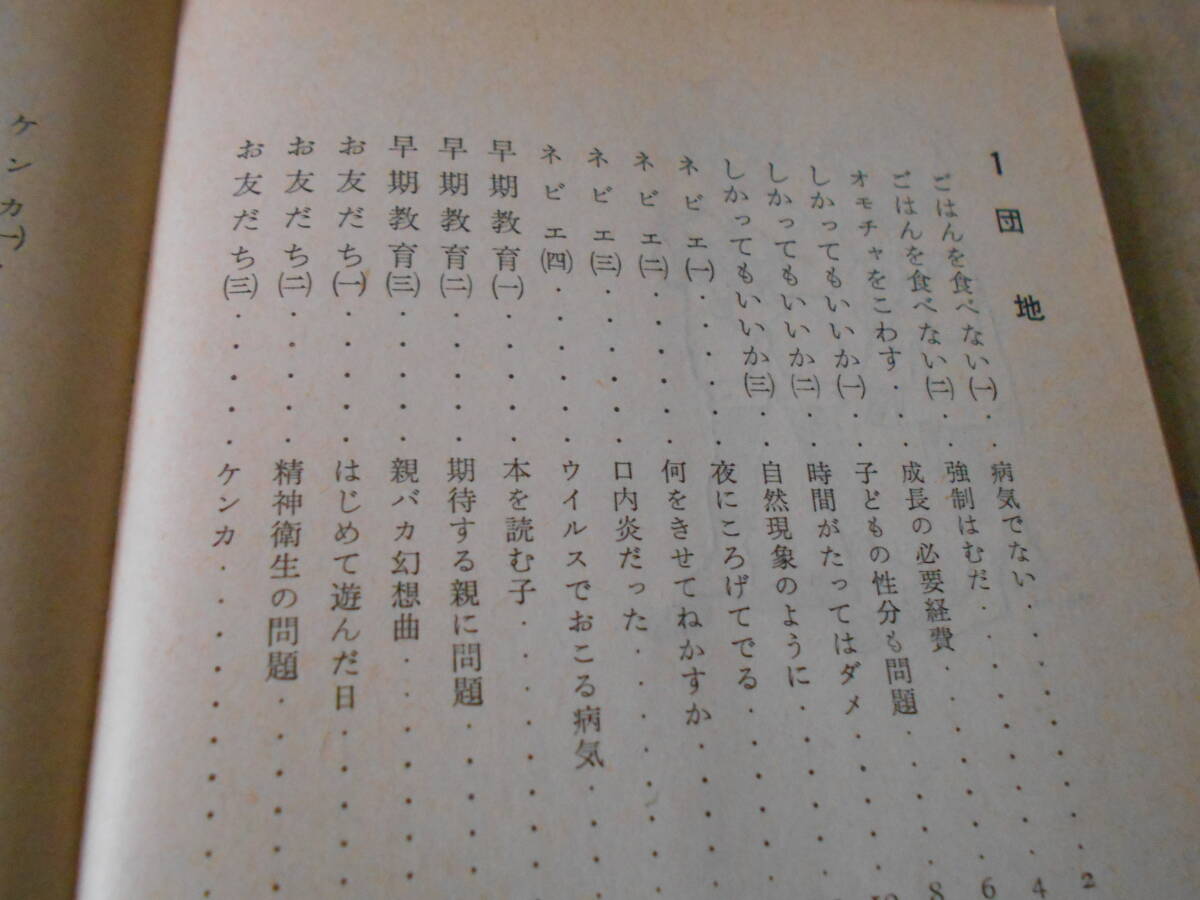 1 団地
ごはんを食べない㈠・・病気でない・・・・・・・・・2
ごはんを食べない㈡・・強制はむだ・・・・・・・・・4
オモチャをこわす・・・成長の必要経費・・・・・・・6
しかってもいいか㈠・・子どもの性分も問題・・・・・8
しかってもいいか㈡・・時間がたってはダメ・・・・・
しかってもいいか㈢・・自然現象のように・・・・・・
ネビエ㈠・・・・・・・夜にころげてでる・・・・・・
ネビエ㈡・・・・・・・何をきせてねかすか・・・・・
ネビエ㈢・・・・・・・口内炎だった・・・・・・・・
ネビエ㈣・・・・・・・ウイルスでおこる病気・・・・
早期教育㈠・・・・・・本を読む子・・・・・・・・・
早期教育㈡・・・・・・期待する親に問題・・・・・・
早期教育㈢・・・・・・親バカ幻想曲・・・・・・・・
お友だち㈠・・・・・・はじめて遊んだ日・・・・・・
お友だち㈡・・・・・・精神衛生の問題・・・・・・・
お友だち㈢・・・・・・ケンカ・・・・・・・・・・・
ケンカ㈠・